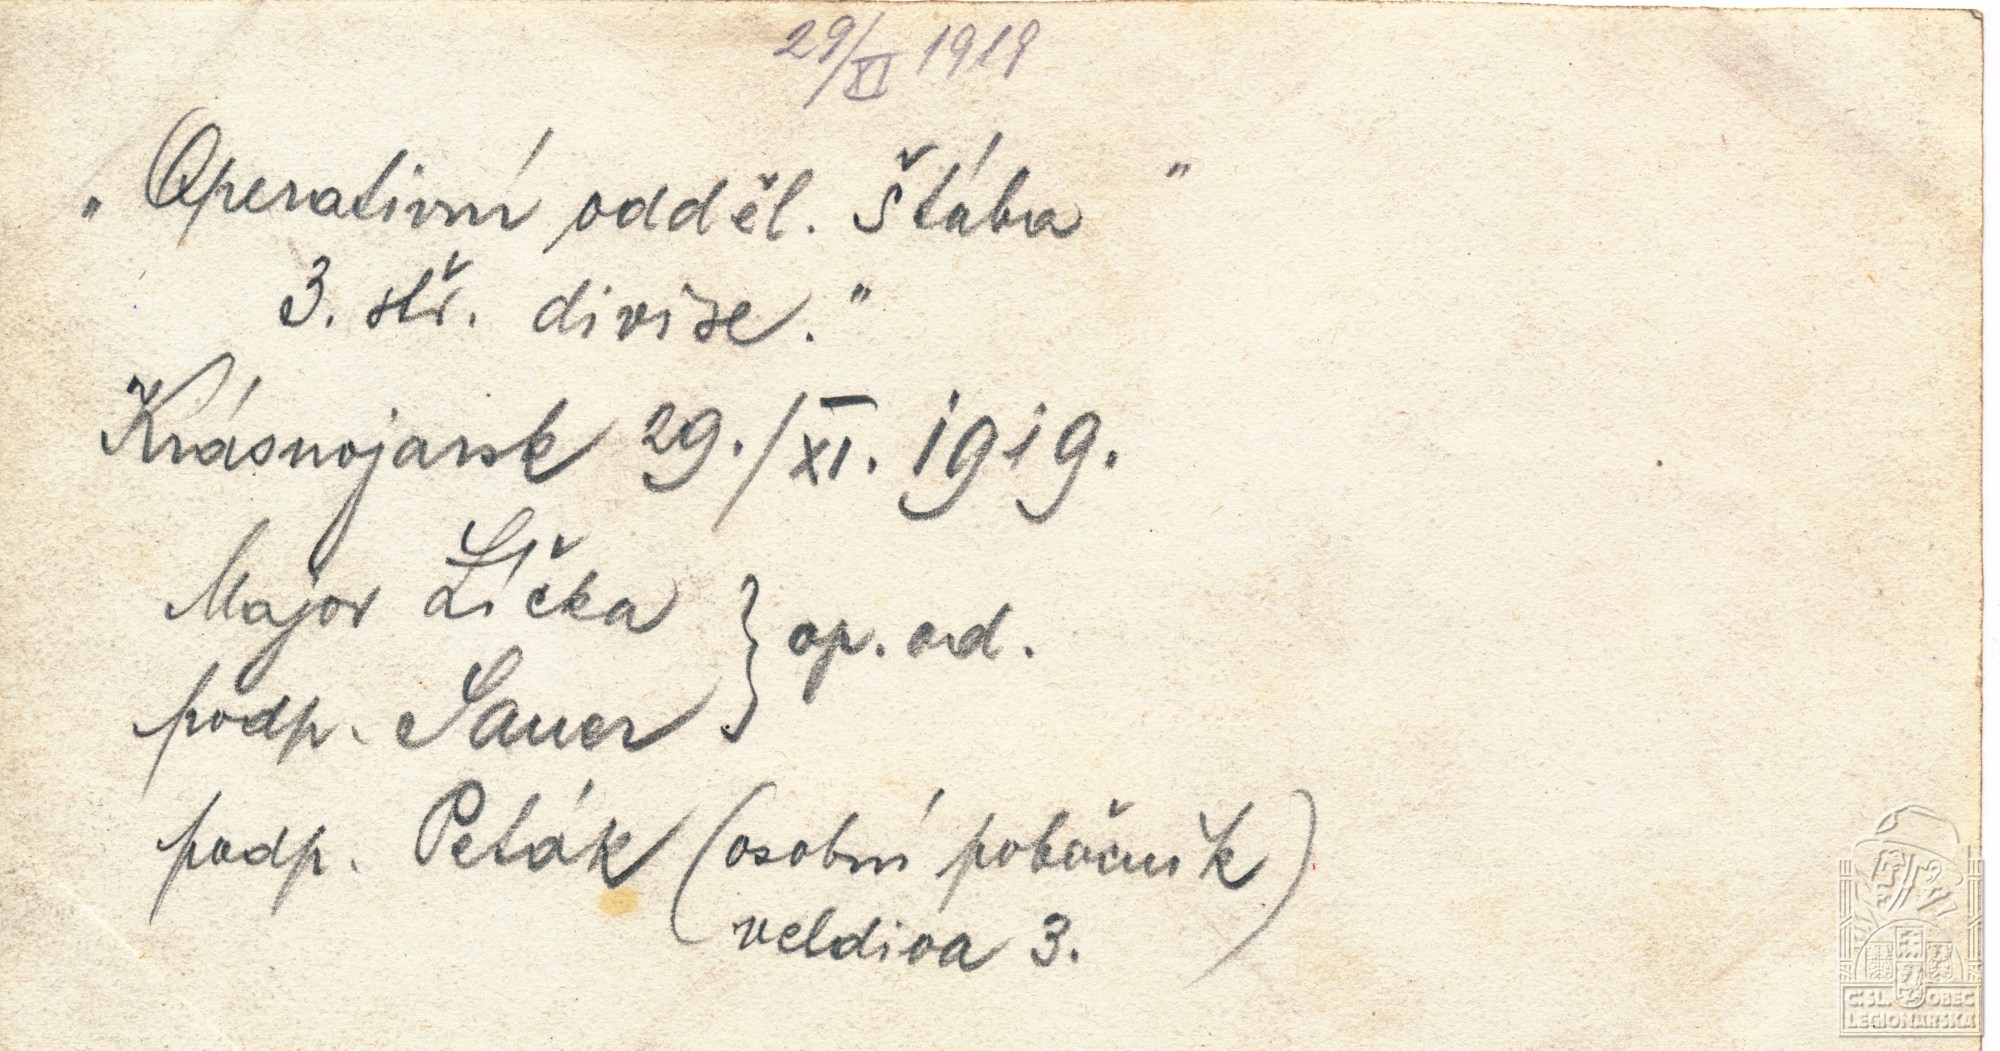 29/XI 1919
„Operativní odděl. štába"
3. stř. divise."
Krásnojarsk 29./XI. 1919.
Major Lička } op. od.
podp. Sauer
podp. Peták (osobní pobočník
veldiva 3.)
Č.SL. OBEC
LEGIONÁŘSKÁ